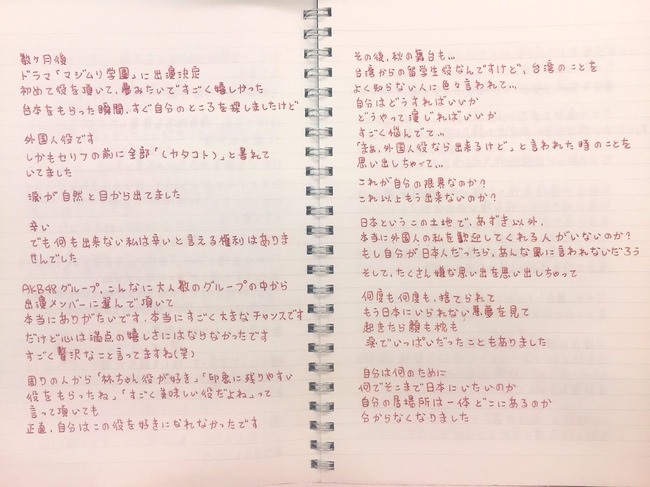 数ヶ月後
ドラマ「マジムリ学園」に出演決定
初めて役を頂いて、夢みたいですごく嬉しかった
台本をもらった瞬間、すぐ自分のところを探しましたけど
外国人役です
しかもセリフの前に全部「(カタコト)」と書れて
いていました
涙が自然と目から出てました
辛い
でも何も出来ない私は辛いと言える権利はありま
せんでした
AKB48グループ、こんなに大人数のグループの中から
出演メンバーに選んで頂いて
本当にありがたいです、本当にすごく大きなチャンスです
だけど心は満点の嬉しさにはならなかったです
すごく贅沢なこと言ってますね(笑)
周りの人から「林ちゃん役が好き」「印象に残りやすい
役をもらったね」「すごく美味しい役だよね」って
言って頂いても
正直、自分はこの役を好きになれなかったです
その後、秋の舞台も…
台湾からの留学生役なんですけど、台湾のことを
よく知らない人に色々言われて…
自分はどうすればいいか
どうやって演じればいいか
すごく悩んでて…
「まぁ、外国人役なら出来るけど」と言われた時のことを
思い出しちゃって…
これが自分の限界なのか?
これ以上もう出来ないのか?
日本というこの土地で、あずき以外、
本当に外国人の私を歓迎してくれる人がいないのか?
もし自分が日本人だったら、あんな風に言われないだろう
そして、たくさん嫌な思い出を思い出しちゃって
何度も何度も、捨てられて
もう日本にいられない悪夢を見て
起きたら顔も枕も
涙でいっぱいだったこともありました
自分は何のために
何でそこまで日本にいたいのか
自分の居場所は一体どこにあるのか
分からなくなりました